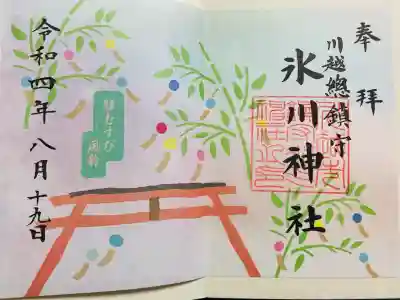 奉拝
川越總鎮守
氷川神社
縁むすび
風鈴
令和四年八月十九日